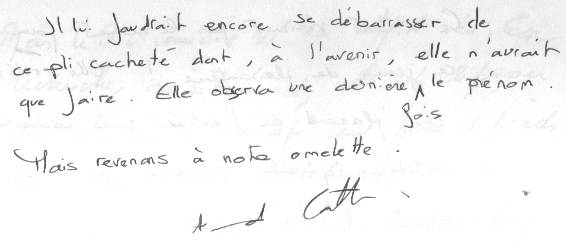 Il lui faudrait encore se débarrasser de
ce pli cacheté dont, à l'avenir, elle n'aurait
que faire. Elle observa une dernière fois le prénom.
Mais revenons à notre omelette.